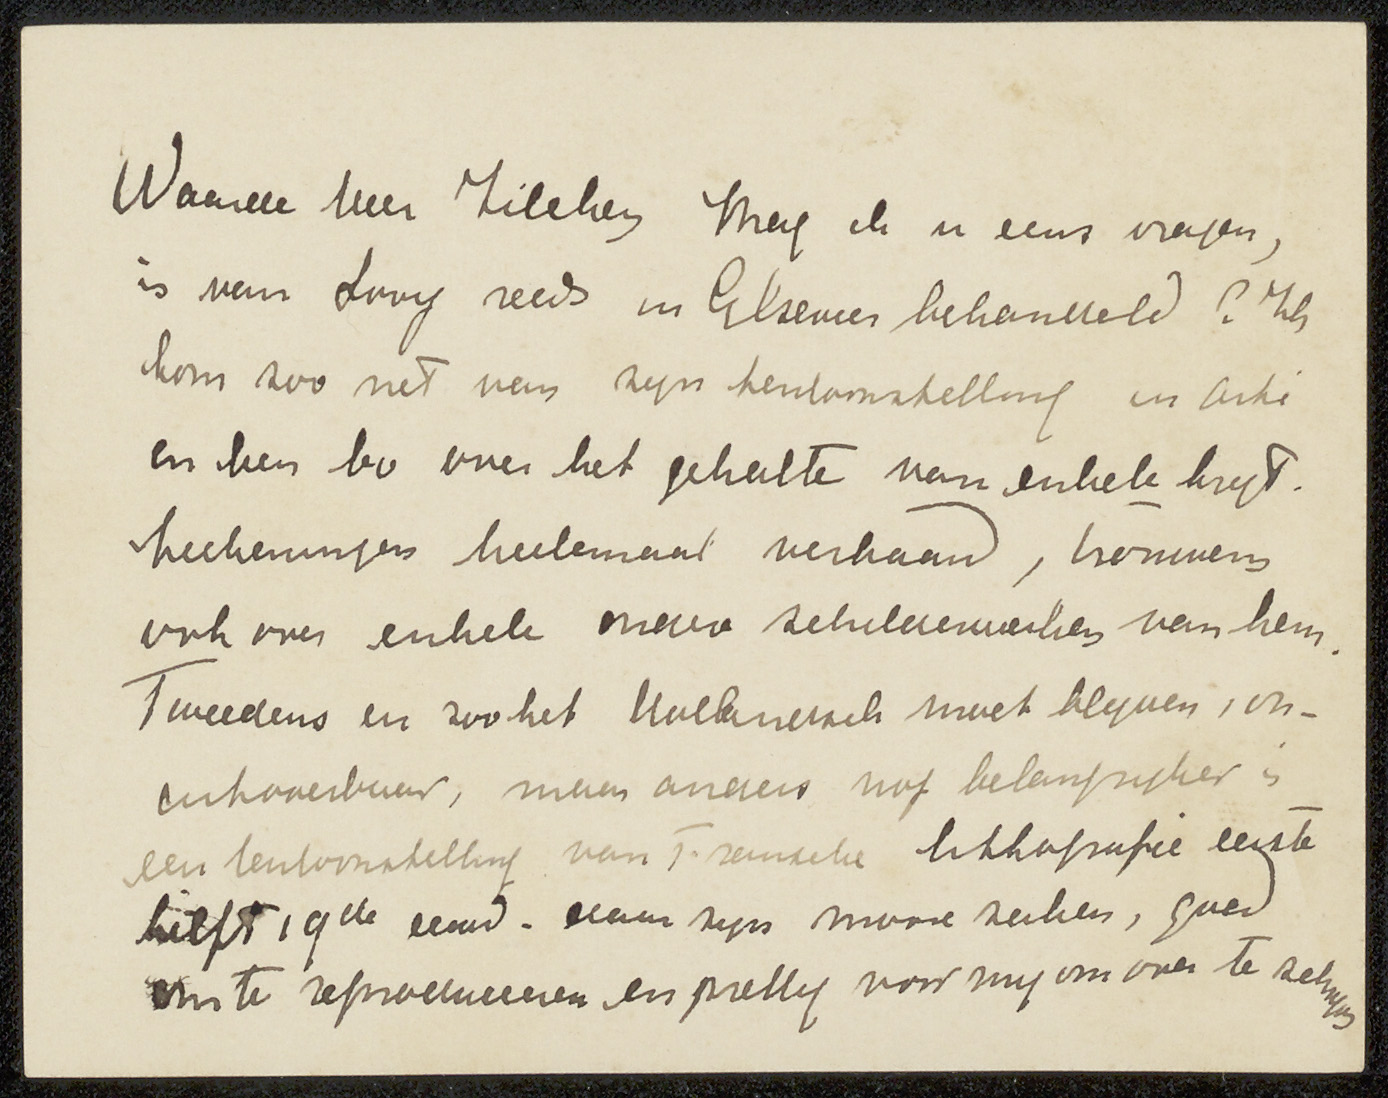 Waarde heer Zilcken Mag ik u eens vragen,
is van Looy reeds in Elsevier behandeld? Ik
kom zoo net van zijn tentoonstelling in Arti
en ben bv over het gehalte van enkele krijt-
teekeningen heelemaal verbaasd, trouwens
ook over enkele andere schilderwerken van hem.
Tweedens en zoo het Hollandsch moet blijven, on-
aantoonbaar, maar anders nog belangrijker is
een tentoonstelling van Fransche lithografie eerste
helft 19de eeuw. daar zijn mooie zaken, goed
om te reproduceeren en prettig voor mij om over te schrijven